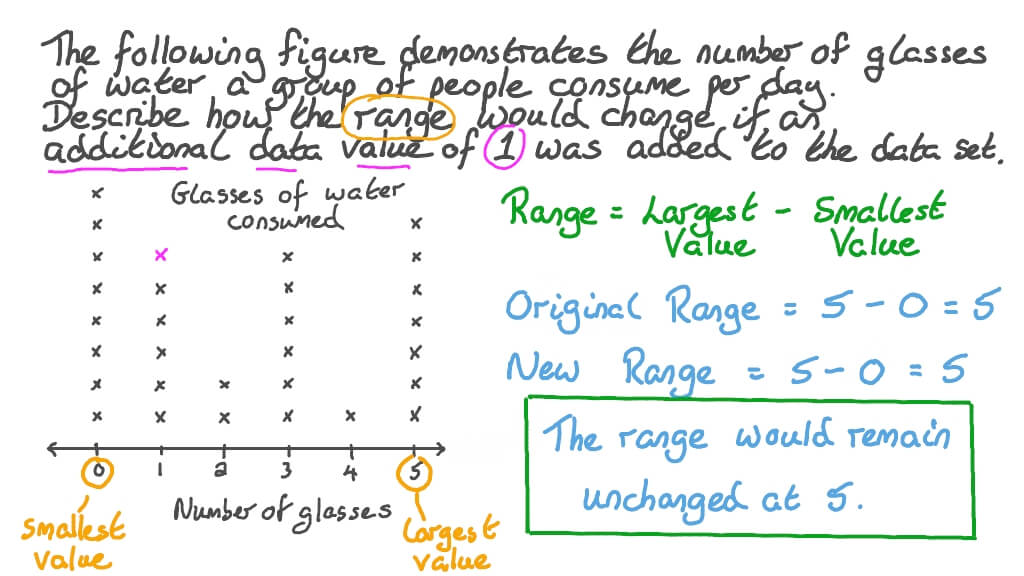 The following figure demonstrates the number of glasses
of water a group of people consume per day.
Describe how the range would change if an
additional data value of 1 was added to the data set.
Glasses of water
consumed
0 1 2 3 4 5
Number of glasses
Smallest
Value
Largest
value
Range = Largest - Smallest
Value Value
Original Range = 5 - 0 = 5
New Range = 5 - 0 = 5
The range would remain
unchanged at 5.